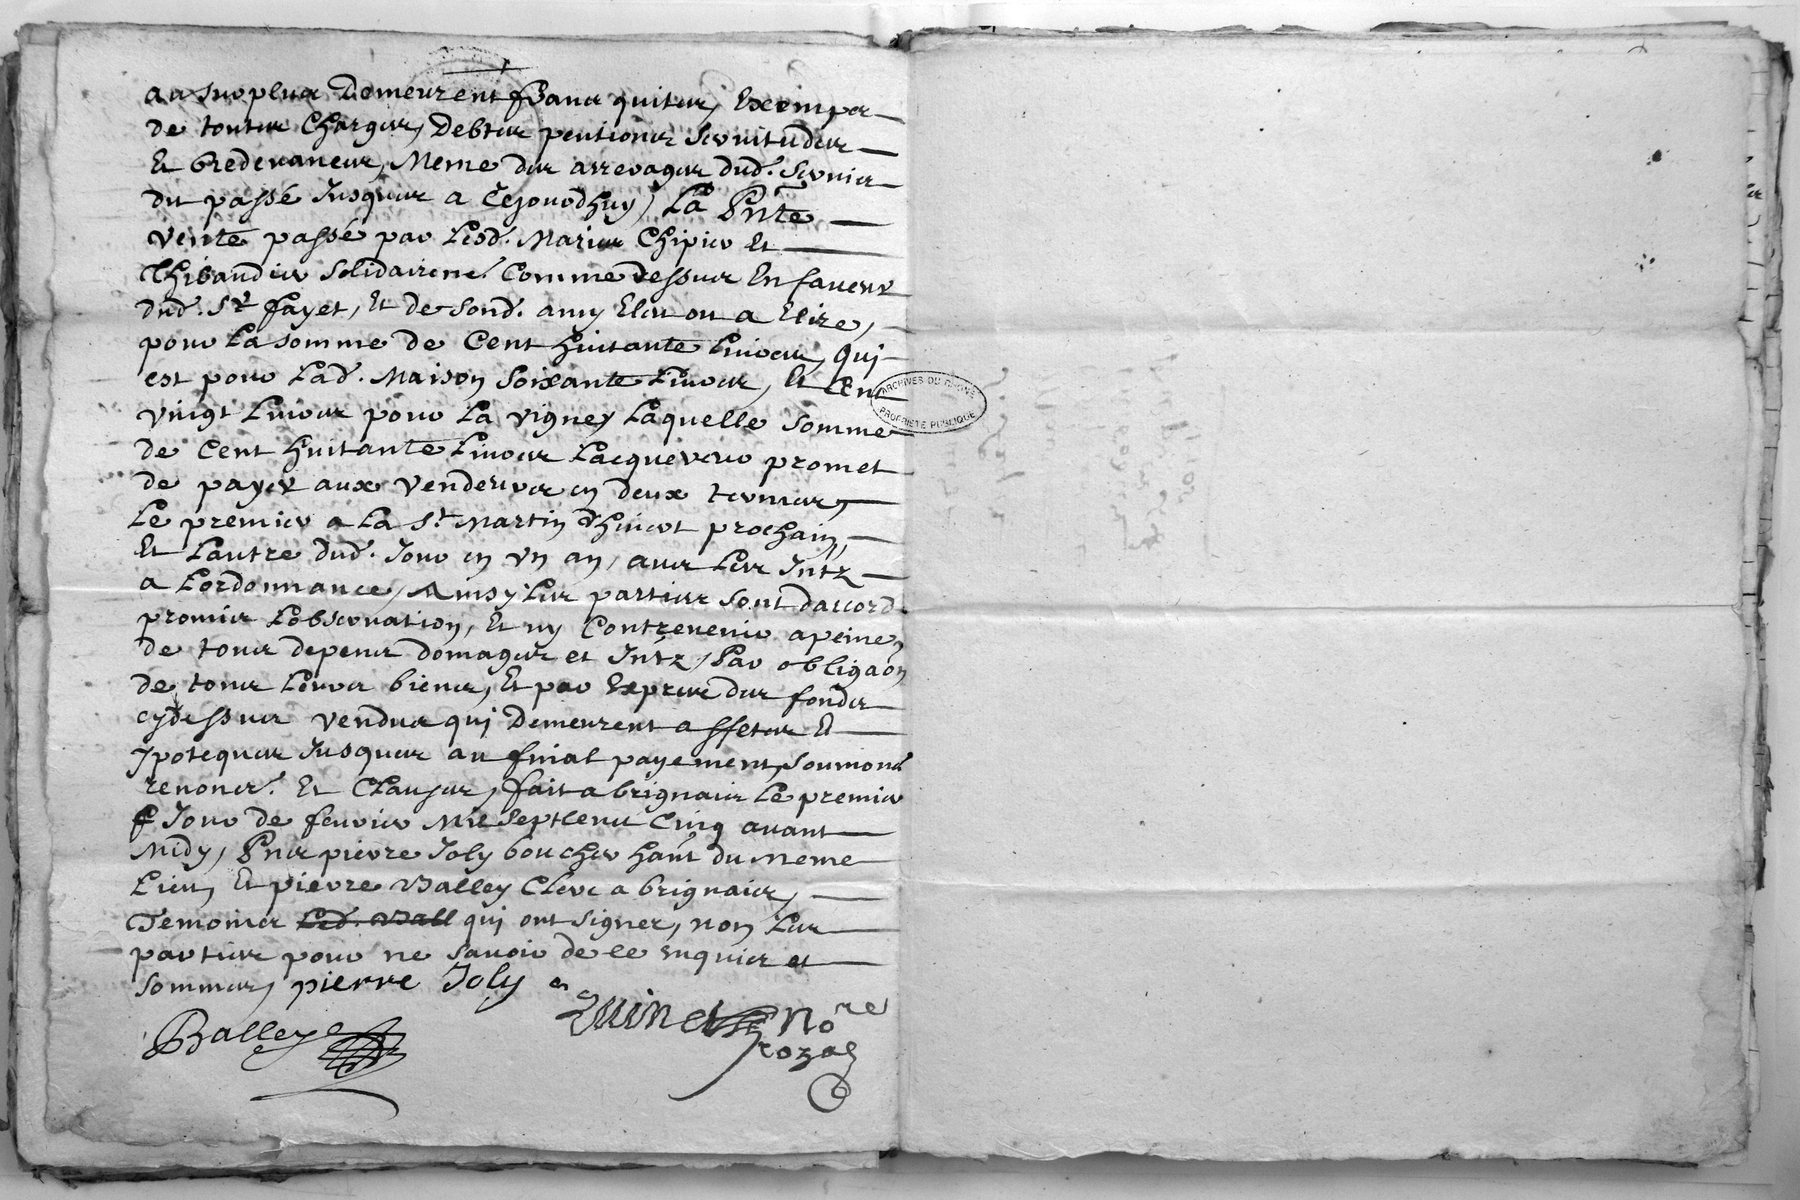 au surplus Demeurent francs quites, Exemps
de toutes Charges, Debtes pentions servitudes
Et Redevances, Meme des arrerages dud. servis
du passé Jusques a Cejourdhuy, La Pnte
vente passé par Lesd. Maries Chipier Et
Thibaudier solidairemt. Comme dessus En faveur
dud. Sr. fayet, Et de sond. amy Eleu ou a Elire,
pour La somme de Cent huitante Livres, qui
est pour Lad. Maison soixante Livres, Et Cent
vingt Livres pour La vigne, Laquelle somme
de Cent huitante Livres Lacquereur promet
de payer aux vendeurs en deux termes,
Le premier a La St. Martin dhivert prochain,
Et Lautre dud. Jour en vn an, avec Les Jntz
a Lordonnance, Ainsy Les parties sont daccord
promis Lobservation, Et ny Contrevenir apeine
de tous depens domages et Jntz, Par obligaon
de tous Leurs biens, Et par Expres des fonds
cydessus vendus qui Demeurent affetes Et
Jpoteques Jusques au finiat payement, soumons
renoncs. Et Clauses, fait a brignais Le premier
Jour de fevrier Mil septcent Cinq avant
Midy, Pns pierre Joly boucher hant du Meme
Lieu, Et pierre Balley Clerc a brignais,
Temoins Led. Ball qui ont signer, non Les
parties pour ne savoir de ce enquies et
sommes, pierre Joly
Balley
Quinet Nore
rozal
ARCHIVES DU RHONE
PROPRIETE PUBLIQUE